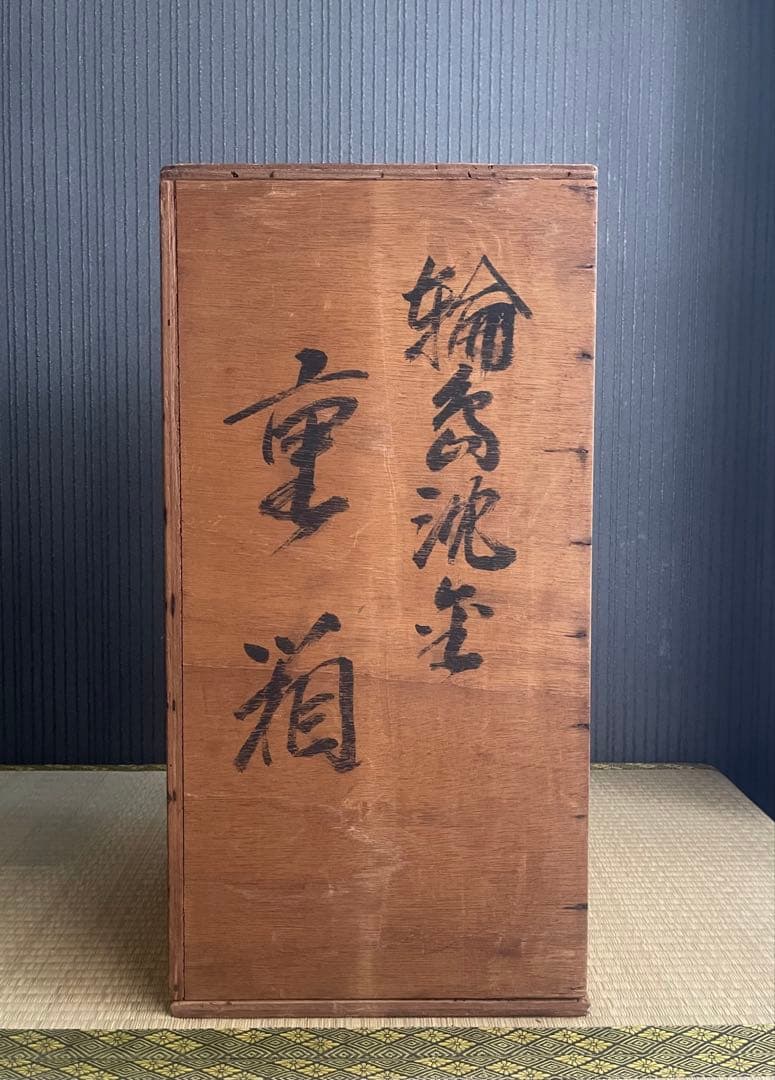 輪島沈金
重箱